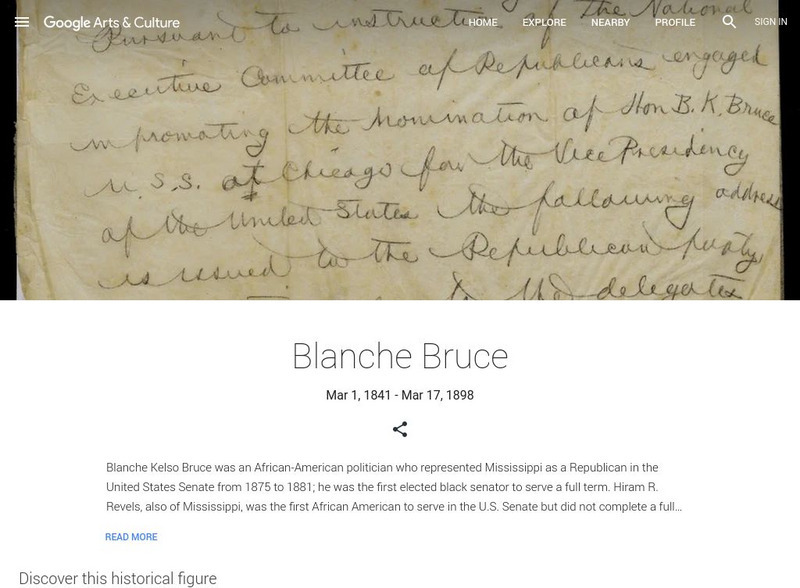 Google Arts & Culture
HOME EXPLORE NEARBY PROFILE SIGN IN
Pursuant to instructions of The National
Executive Committee of Republicans engaged
in promoting the nomination of Hon B. K. Bruce
U. S. S. at Chicago for the Vice Presidency
of the United States the following address
is issued to the Republican party
to the delegates
Blanche Bruce
Mar 1, 1841 - Mar 17, 1898
Blanche Kelso Bruce was an African-American politician who represented Mississippi as a Republican in the
United States Senate from 1875 to 1881; he was the first elected black senator to serve a full term. Hiram R.
Revels, also of Mississippi, was the first African American to serve in the U.S. Senate but did not complete a full...
READ MORE
Discover this historical figure